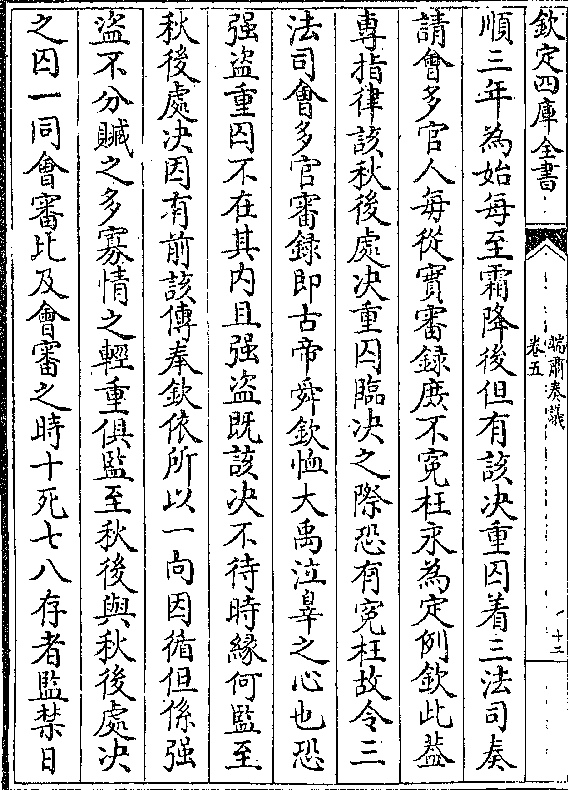 欽定四庫全書
端肅奏議
卷五
十二
順三年為始每至霜降後但有該决重囚着三法司奏
請會多官人毎從實審録庻不冤枉永為定例欽此葢
専指律該秋後處决重囚臨决之際恐有冤枉故令三
法司會多官審録即古帝舜欽恤大禹泣辜之心也恐
强盗重囚不在其内且强盗既該决不待時縁何監至
秋後處决因有前該傳奉欽依所以一向因循但係强
盗不分贓之多寡情之輕重俱監至秋後與秋後處决
之囚一同會審比及會審之時十死七八存者監禁日